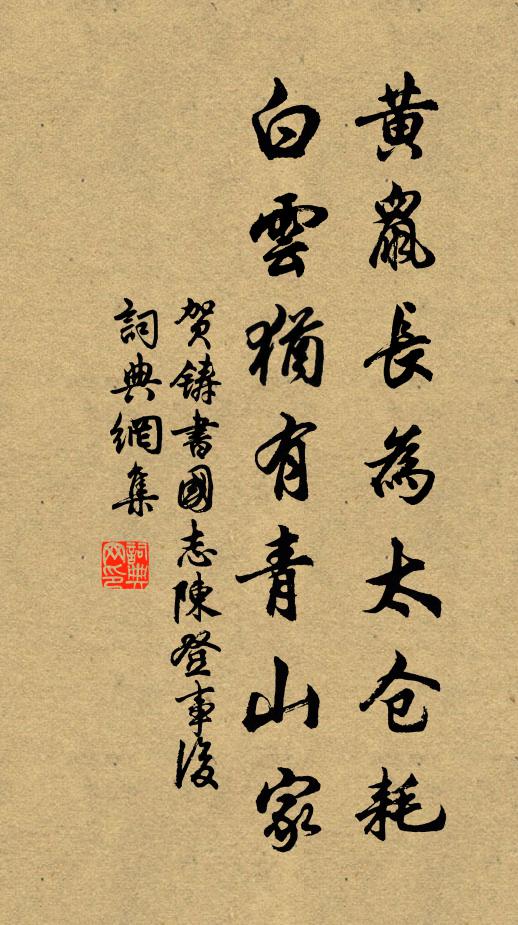 黄鼠長為太仓耗
白雲猶有青山家
贺鑄書國志陳登事後
詞典網集
詞典網印